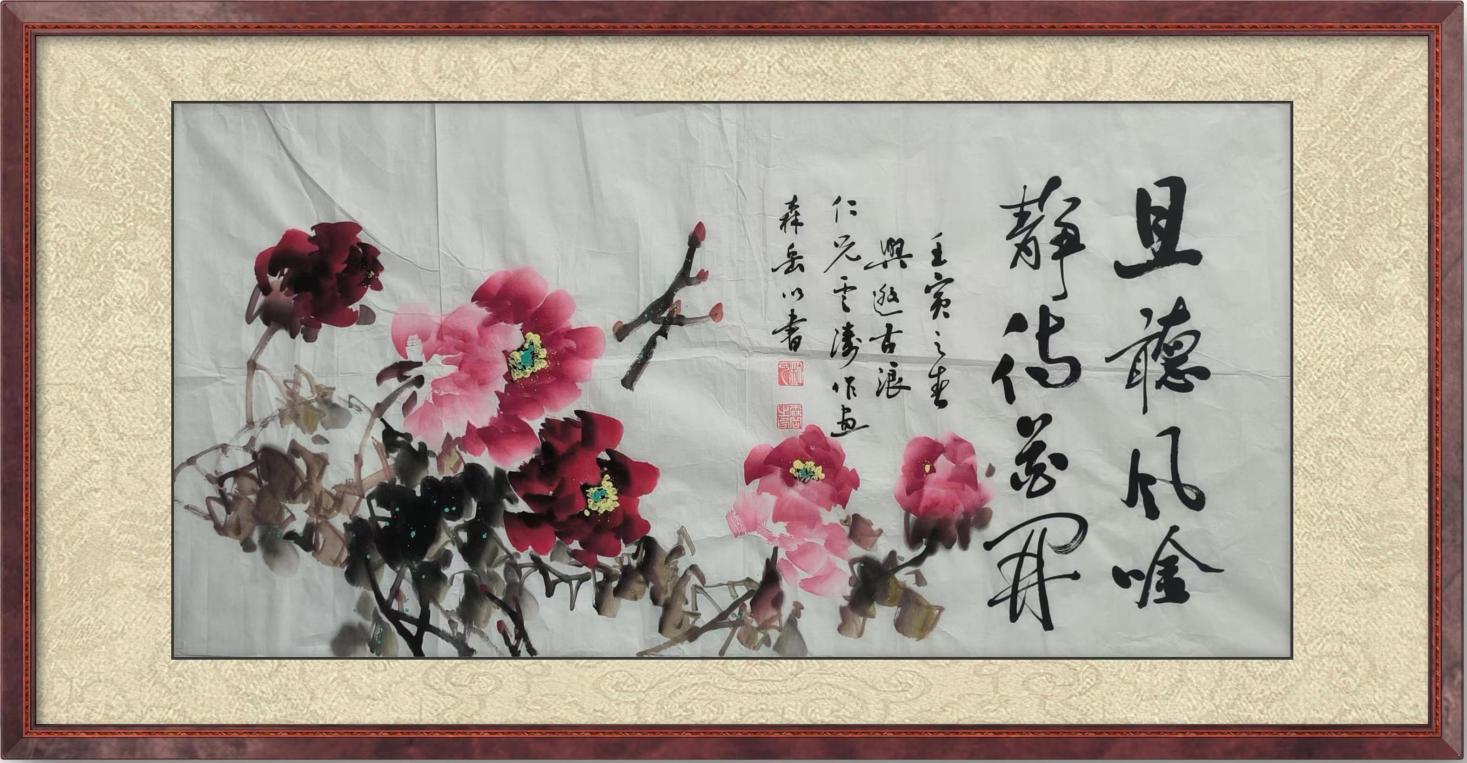 且聽風吟
靜待花開
壬寅之春
興邀古浪
仁兄雲濤作画
森岳以書